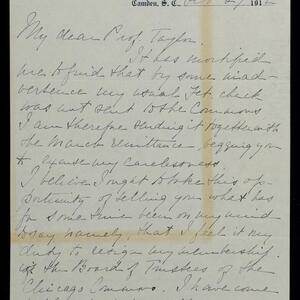 Camden, S. C. 191
My dear Prof. Taylor.
It has mortified
me to find that by some inad-
vertence my usual Feb. check
was not sent to the Commons
I am therefore sending it together with
the March remittance, begging you
to excuse my carelessness.
I believe I ought to take this op-
portunity of telling you what has
for some time been on my mind
to say namely, that I feel it my
duty to resign my membership
of the Board of Trustees of the
Chicago Commons. I have come